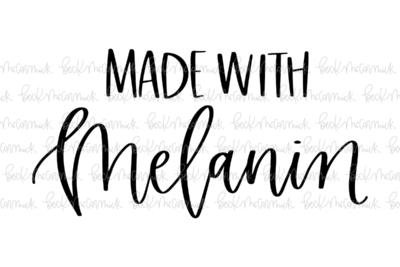 MADE WITH
Melanin